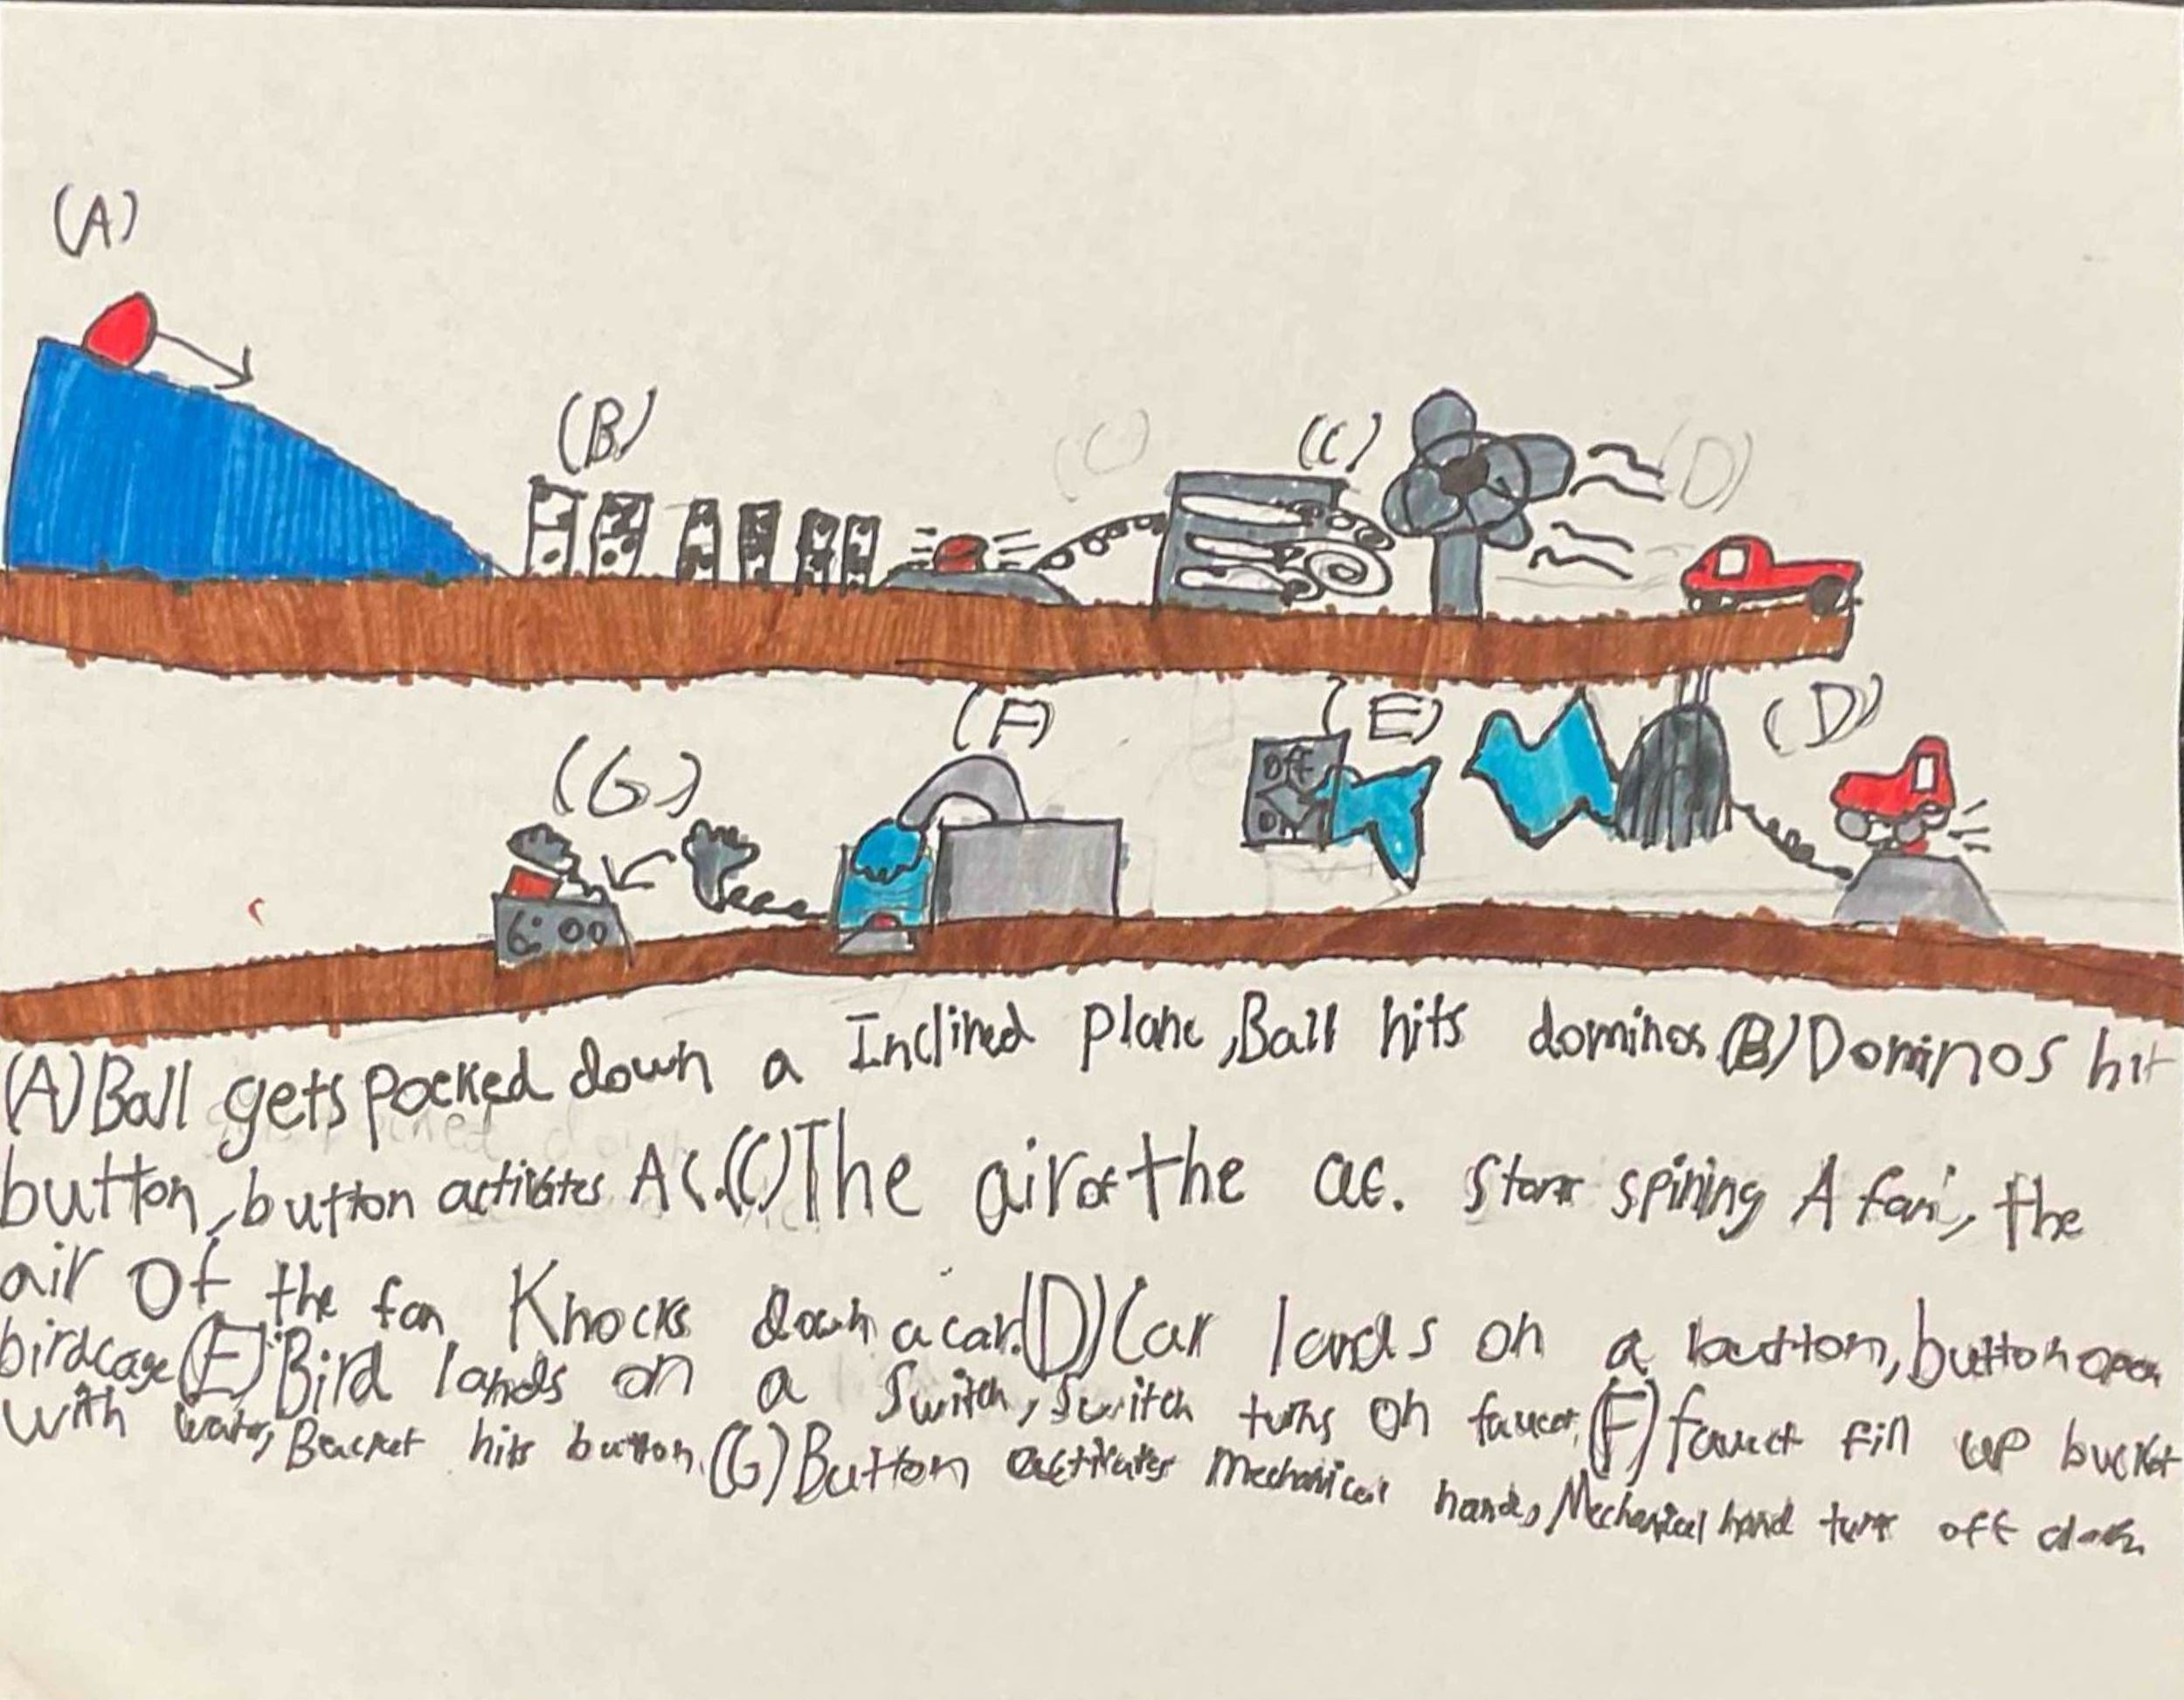 (A)
(B)
(C)
(C)
(D)
(G)
(F)
(E)
(D)
Off
ON
6:00
(A) Ball gets pocked down a Inclined plane, Ball hits dominos. (B) Dominos hit
button, button activates AC. (C) The air of the ac. Start spining A fan, the
air of the fan Knocks down a car. (D) Car lands on a button, button open
birdcage (E) Bird lands on a switch, switch turns on faucet, (F) faucet fill up bucket
with water, Bucket hits button. (G) Button activates Mechanical hands, Mechanical hand turn off clock